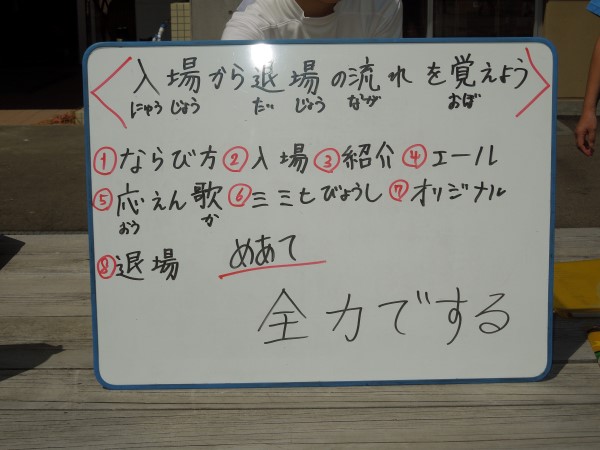 〈入場から退場の流れを覚えよう〉
にゅうじょう だ じょう なが おぼ
①ならび方 ②入場 ③紹介 ④エール
⑤応えん歌 ⑥ミミヒびょうし ⑦オリジナル
おう か
⑧退場 めあて
全力でする